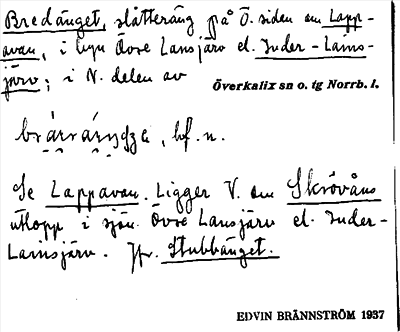 Bredänget, slåtteräng på Ö. siden om Lapp-
avan, i byn Övre Lansjärv el. Inder-Lains-
järv; i N. delen av
Överkalix sn o. tg Norrb. l.
bf. n.
Se Lappavan. Ligger V. om Skrövåns
utlopp i sjön Övre Lansjärv el. Inder-
Lainsjärv. Jfr. Stubbänget.
EDVIN BRÄNNSTRÖM 1937